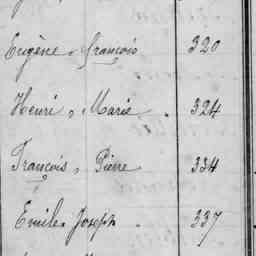 Eugène, François 320
Henri, Marie 324
François, Pierre 334
Emile, Joseph 337